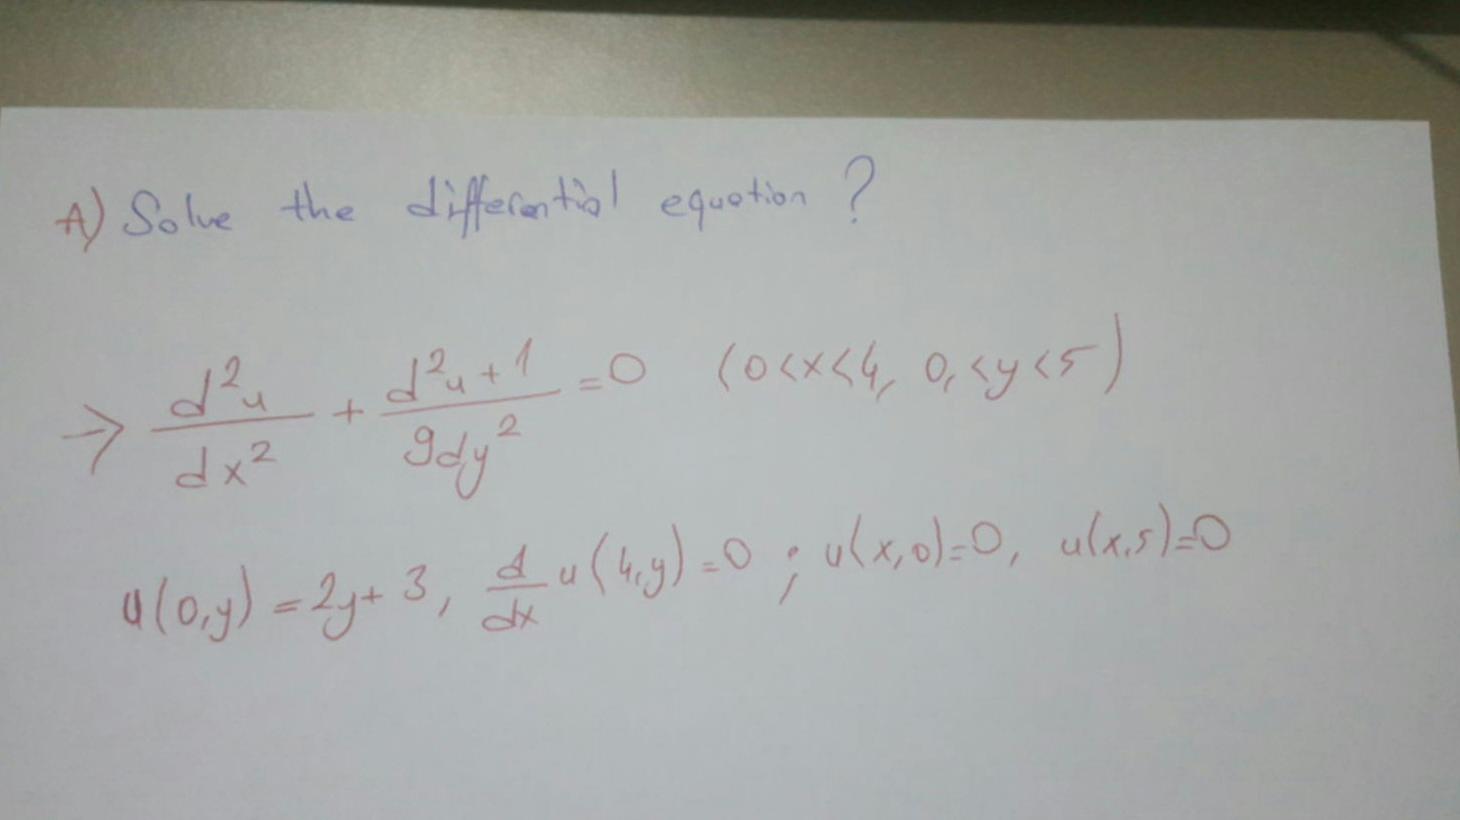 A) Solve the differential equation ?
→ d²u/dx² + d²u+1/9dy² =0 (0<x<4, 0,<y<5)
u(0,y) = 2y+3, d/dx u(4,y)=0 ; u(x,0)=0, u(x,5)=0